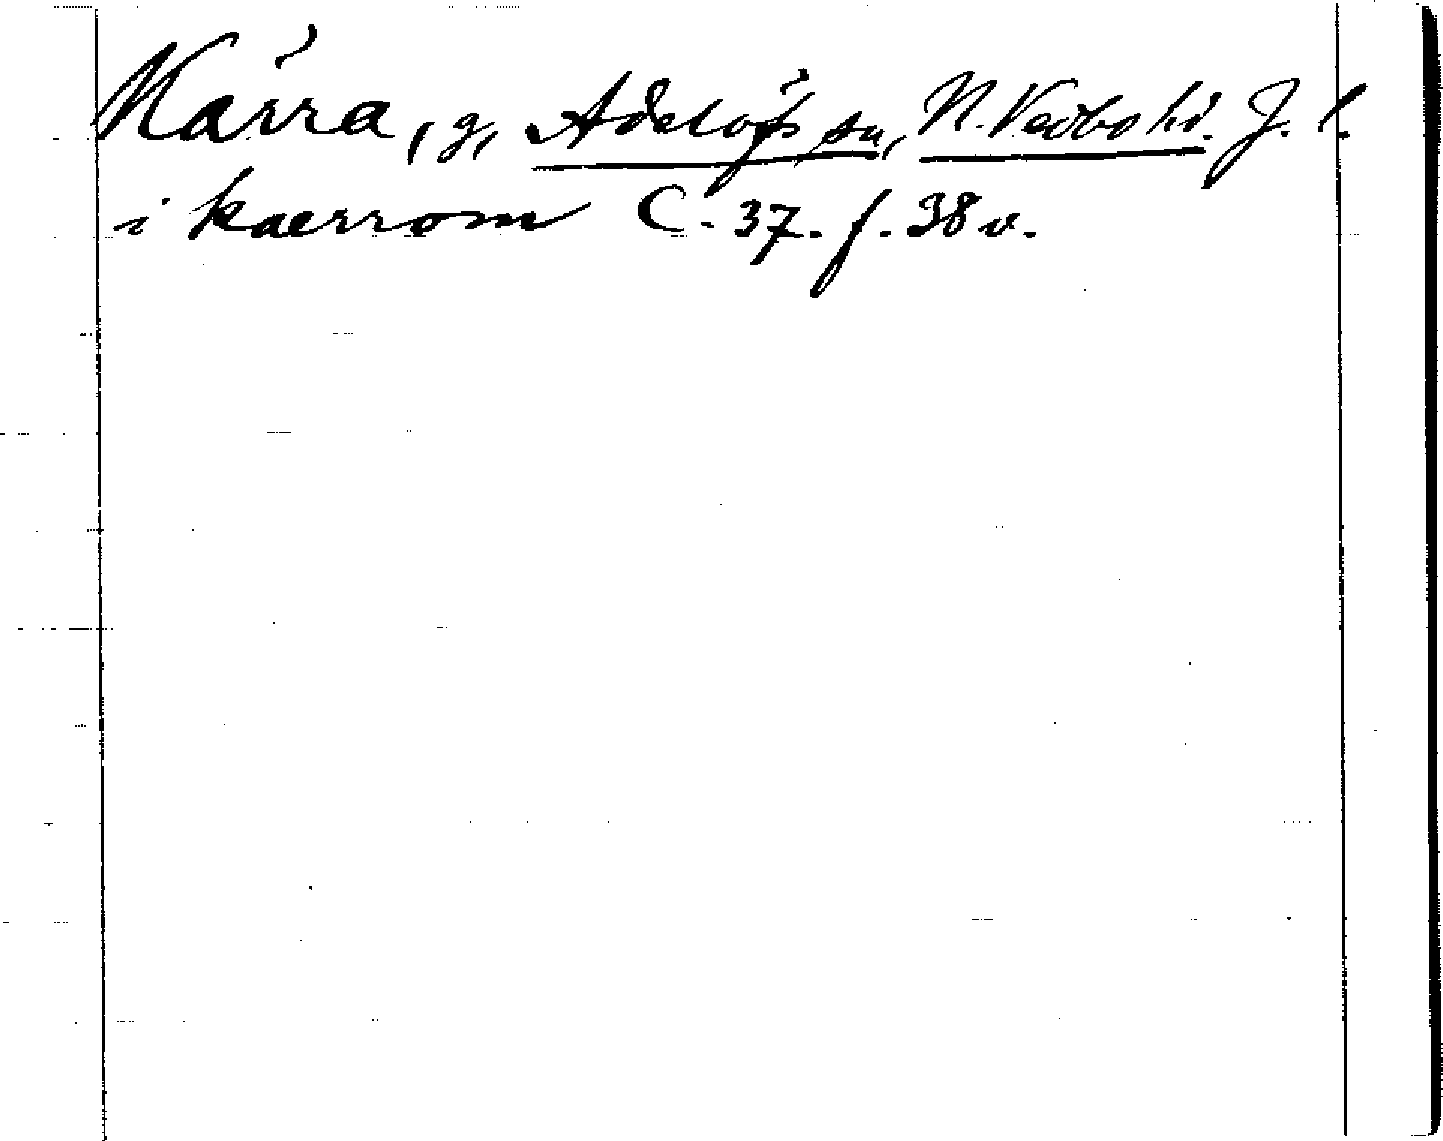 Kärra, g, Adelöfs sn, N. Vedbo hd. J. l.
i kaerrom C. 37. f. 38 v.